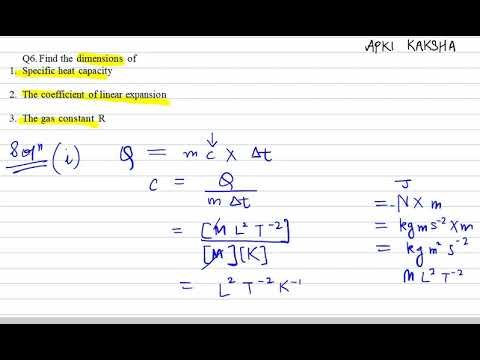 APKI KAKSHA
Q6. Find the dimensions of
1. Specific heat capacity
2. The coefficient of linear expansion
3. The gas constant R
Solⁿ (i) Q = m c x Δt
c = Q / m Δt
= [M L² T⁻²] / [M][K]
= L² T⁻² K⁻¹
J
= N x m
= kg m s⁻² x m
= kg m² s⁻²
M L² T⁻²